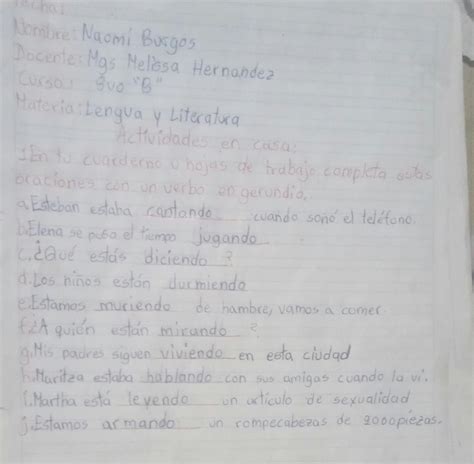 Fecha:
Nombre: Naomi Burgos
Docente: Mgs Melissa Hernandez
Curso: 8vo "B"
Materia: Lengua y Literatura
Actividades en casa:
1. En tu cuarderno u hojas de trabajo, completa estas
oraciones con un verbo en gerundio.
a. Esteban estaba cantando cuando sonó el teléfono.
b. Elena se pasa el tiempo jugando
c. ¿Qué estás diciendo?
d. Los niños están durmiendo
e. Estamos muriendo de hambre, vamos a comer.
f. ¿A quién están mirando?
g. Mis padres siguen viviendo en esta ciudad
h. Maritza estaba hablando con sus amigas cuando la vi.
i. Martha está leyendo un artículo de sexualidad
j. Estamos armando un rompecabezas de 2000 piezas.